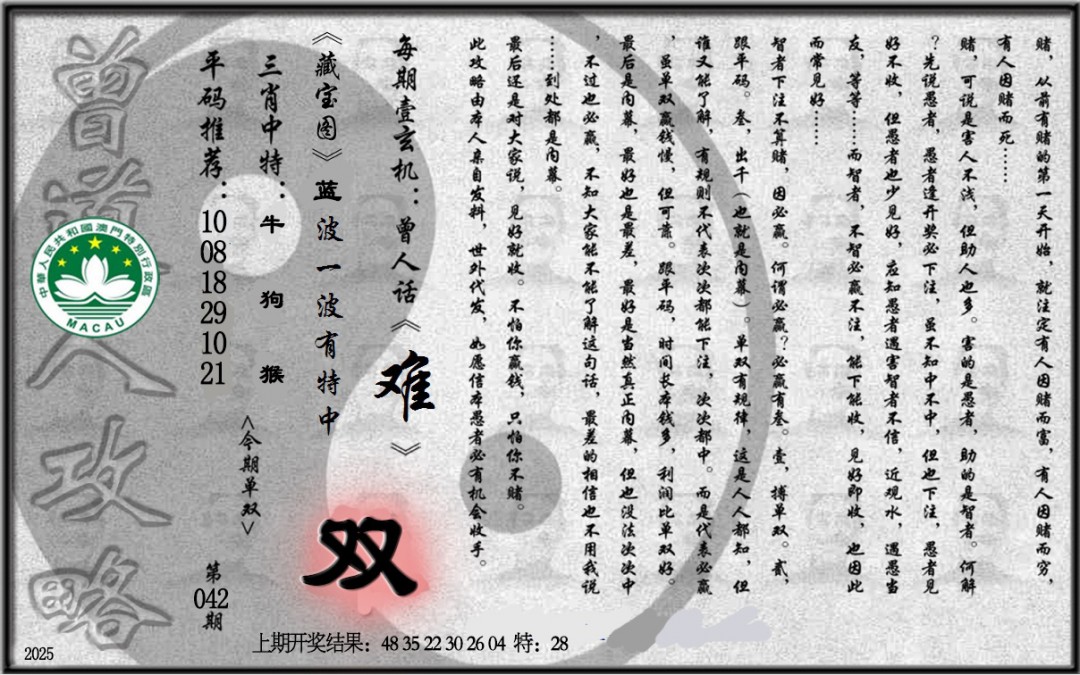 赌，从前有赌的第一天开始，就注定有人因赌而富，有人因赌而穷，
有人因赌而死……
赌，可说是害人不浅，但助人也多。害的是愚者，助的是智者。何解
？先说愚者，愚者逢开奖必下注，虽不知中不中，但也下注，愚者见
好不收，但愚者也少见好，应知愚者遇害智者不信，近观水，遇愚当
友，等等……而智者，不智必赢不注，能下能收，见好即收，也因此
而常见好……
智者下注不算赌，因必赢。何谓必赢？必赢有叁。壹，搏单双。贰，
跟平码。叁，出千（也就是内幕）。单双有规律，这是人人都知，但
谁又能了解，有规则不代表次次都能下注，次次都中。而是代表必赢
，虽单双赢钱慢，但可靠。跟平码，时间长本钱多，利润比单双好。
最后是内幕，最好也是最差，最好是当然真正内幕，但也没法次次中
，不过也必赢，不知大家能不能了解这句话，最差的相信也不用我说
……到处都是内幕。
最后还是对大家说，见好就收。不怕你赢钱，只怕你不赌。
此攻略由本人亲自发料，世外代发，如愿信本愚者必有机会收手。
每期壹玄机：曾人话《难》
《藏宝图》蓝波一波有特中
三肖中特：牛 狗 猴
<今期单双>
双
平码推荐：10 08 18 29 10 21
第042期
曾道人攻略
中華人民共和國澳門特別行政區
MACAU
上期开奖结果：48 35 22 30 26 04 特：28
2025